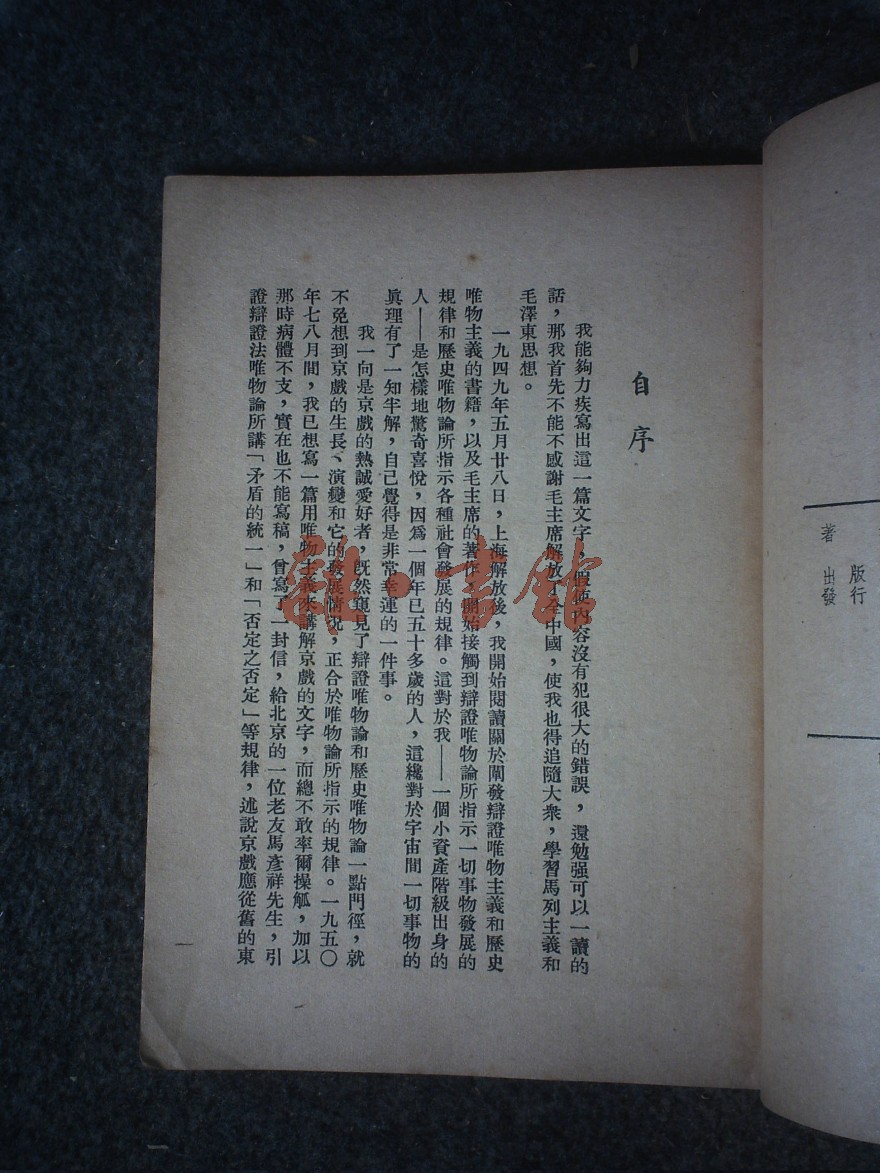 自序
我能夠力疾寫出這一篇文字，假使內容沒有犯很大的錯誤，還勉强可以一讀的
話，那我首先不能不感謝毛主席解放了全中國，使我也得追隨大衆，學習馬列主義和
毛澤東思想。
一九四九年五月廿八日，上海解放後，我開始閱讀關於闡發辯證唯物主義和歷史
唯物主義的書籍，以及毛主席的著作，開始接觸到辯證唯物論所指示一切事物發展的
規律和歷史唯物論所指示各種社會發展的規律。這對於我——一個小資產階級出身的
人——是怎樣地驚奇喜悅，因爲一個年已五十多歲的人，這纔對於宇宙間一切事物的
眞理有了一知半解，自己覺得是非常幸運的一件事。
我一向是京戲的熱誠愛好者，旣然窺見了辯證唯物論和歷史唯物論一點門徑，就
不免想到京戲的生長、演變和它的發展情況，正合於唯物論所指示的規律。一九五〇
年七八月間，我已想寫一篇用唯物主義來講解京戲的文字，而總不敢率爾操觚，加以
那時病體不支，實在也不能寫稿，曾寫了一封信，給北京的一位老友馬彥祥先生，引
證辯證法唯物論所講「矛盾的統一」和「否定之否定」等規律，述說京戲應從舊的東
一
雜·書館
著
出發
版行